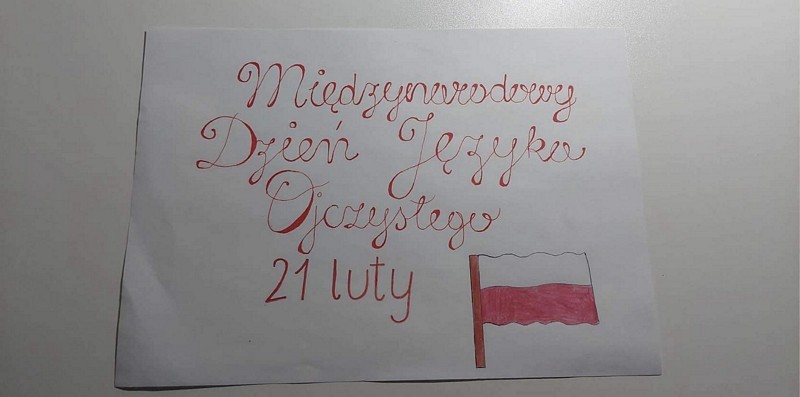 Międzynarodowy
Dzień Języka
Ojczystego
21 luty